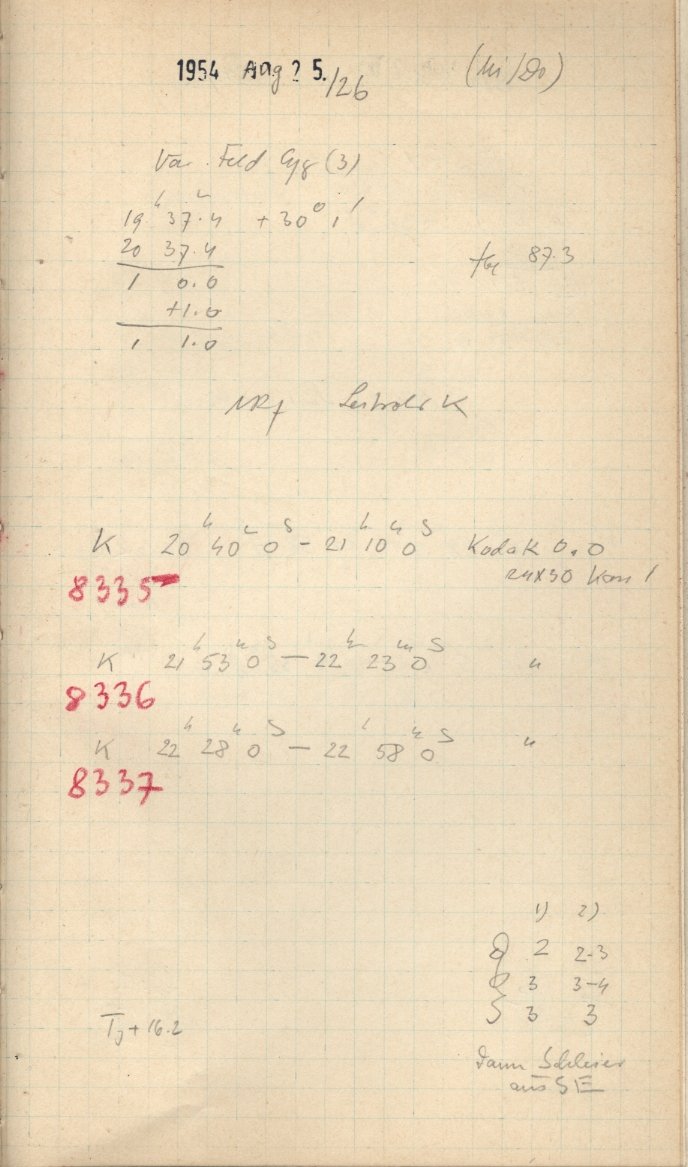 1954 Aug 25./26 (Mi/Do)
Var. Feld Cyg (3)
19ʰ 37.4 +30° 1'
20 37.4
87.3
1 0.0
+1.0
1 1.0
K
K 20ʰ 40ᵐ 0ˢ - 21ʰ 10ᵐ 0ˢ Kodak O.O
24x30
8335
K 21ʰ 53ᵐ 0ˢ — 22ʰ 23ᵐ 0ˢ "
8336
K 22ʰ 28ᵐ 0ˢ — 22ʰ 58ᵐ 0ˢ "
8337
1) 2)
2 2-3
3 3-4
3 3
+16.2
dann Schleier
aus SE